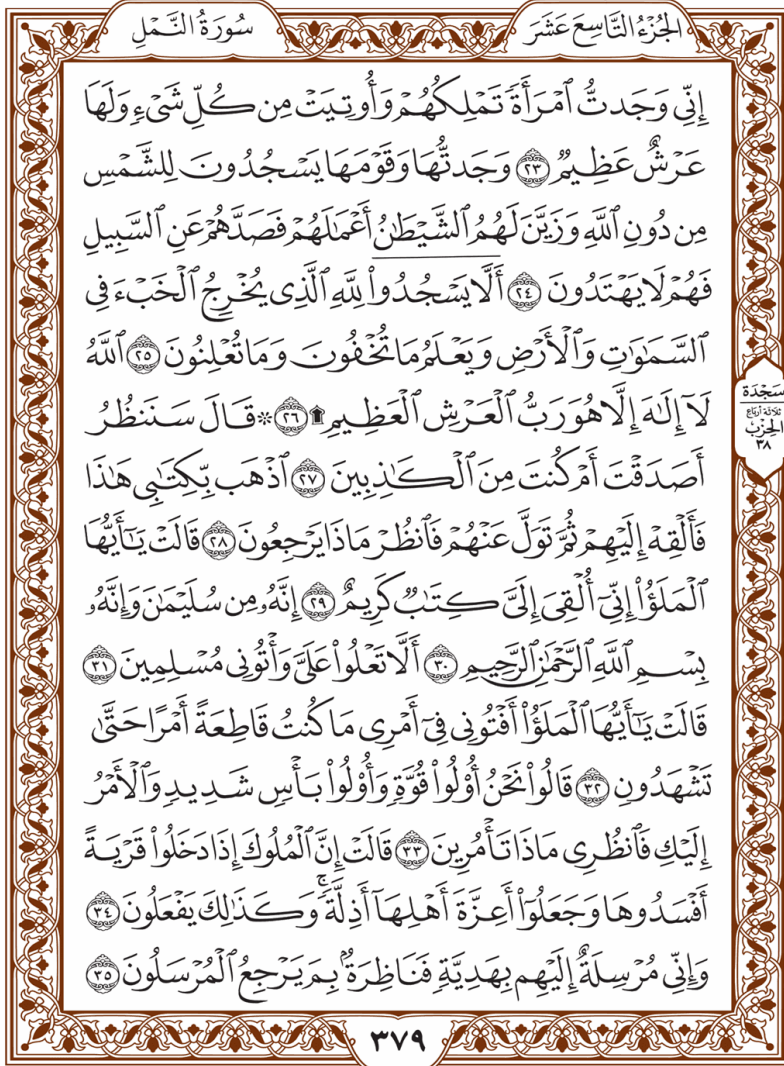 الجُزْءُ التَّاسِعَ عَشَرَ
سُورَةُ النَّمْلِ
إِنِّي وَجَدتُّ ٱمۡرَأَةٗ تَمۡلِكُهُمۡ وَأُوتِيَتۡ مِن كُلِّ شَيۡءٖ وَلَهَا
عَرۡشٌ عَظِيمٞ ٢٣ وَجَدتُّهَا وَقَوۡمَهَا يَسۡجُدُونَ لِلشَّمۡسِ
مِن دُونِ ٱللَّهِ وَزَيَّنَ لَهُمُ ٱلشَّيۡطَٰنُ أَعۡمَٰلَهُمۡ فَصَدَّهُمۡ عَنِ ٱلسَّبِيلِ
فَهُمۡ لَا يَهۡتَدُونَ ٢٤ أَلَّاۤ يَسۡجُدُواْۤ لِلَّهِ ٱلَّذِي يُخۡرِجُ ٱلۡخَبۡءَ فِي
ٱلسَّمَٰوَٰتِ وَٱلۡأَرۡضِ وَيَعۡلَمُ مَا تُخۡفُونَ وَمَا تُعۡلِنُونَ ٢٥ ٱللَّهُ
لَآ إِلَٰهَ إِلَّا هُوَ رَبُّ ٱلۡعَرۡشِ ٱلۡعَظِيمِ ۩ ٢٦ ۞ قَالَ سَنَنظُرُ
أَصَدَقۡتَ أَمۡ كُنتَ مِنَ ٱلۡكَٰذِبِينَ ٢٧ ٱذۡهَب بِّكِتَٰبِي هَٰذَا
فَأَلۡقِهۡ إِلَيۡهِمۡ ثُمَّ تَوَلَّ عَنۡهُمۡ فَٱنظُرۡ مَاذَا يَرۡجِعُونَ ٢٨ قَالَتۡ يَٰٓأَيُّهَا
ٱلۡمَلَؤُاْ إِنِّيٓ أُلۡقِيَ إِلَيَّ كِتَٰبٞ كَرِيمٌ ٢٩ إِنَّهُۥ مِن سُلَيۡمَٰنَ وَإِنَّهُۥ
بِسۡمِ ٱللَّهِ ٱلرَّحۡمَٰنِ ٱلرَّحِيمِ ٣٠ أَلَّا تَعۡلُواْ عَلَيَّ وَأۡتُونِي مُسۡلِمِينَ ٣١
قَالَتۡ يَٰٓأَيُّهَا ٱلۡمَلَؤُاْ أَفۡتُونِي فِيٓ أَمۡرِي مَا كُنتُ قَاطِعَةً أَمۡرًا حَتَّىٰ
تَشۡهَدُونِ ٣٢ قَالُواْ نَحۡنُ أُوْلُواْ قُوَّةٖ وَأُوْلُواْ بَأۡسٖ شَدِيدٖ وَٱلۡأَمۡرُ
إِلَيۡكِ فَٱنظُرِي مَاذَا تَأۡمُرِينَ ٣٣ قَالَتۡ إِنَّ ٱلۡمُلُوكَ إِذَا دَخَلُواْ قَرۡيَةً
أَفۡسَدُوهَا وَجَعَلُوٓاْ أَعِزَّةَ أَهۡلِهَآ أَذِلَّةٗۚ وَكَذَٰلِكَ يَفۡعَلُونَ ٣٤
وَإِنِّي مُرۡسِلَةٌ إِلَيۡهِم بِهَدِيَّةٖ فَنَاظِرَةُۢ بِمَ يَرۡجِعُ ٱلۡمُرۡسَلُونَ ٣٥
سَجْدَة
ثلاثة أرباع
الحِزْب
٣٨
٣٧٩